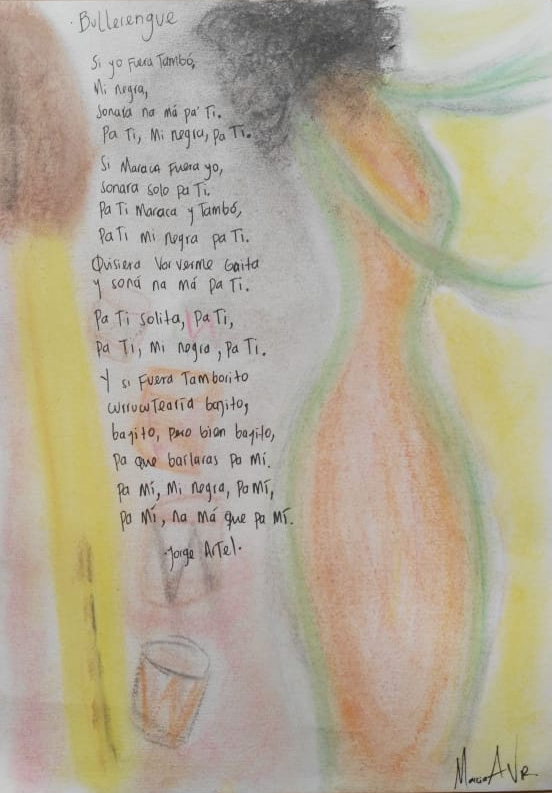 Bullerengue
Si yo fuera Tambó,
Mi negra,
Sonara na má pa' Ti.
Pa Ti, Mi negra, Pa Ti.
Si Maraca fuera yo,
sonara solo pa Ti.
Pa Ti Maraca y Tambó,
Pa Ti mi negra pa Ti.
Quisiera vorverme gaita
y soná na má pa Ti.
Pa Ti solita, Pa Ti,
Pa Ti, Mi negra, Pa Ti.
Y si fuera Tamborito
currucuTearía bajito,
bajito, pero bien bajito,
pa que bailaras pa Mí.
pa Mí, Mi negra, Pa Mí,
pa Mí, na má que pa Mí.
·Jorge Artel·